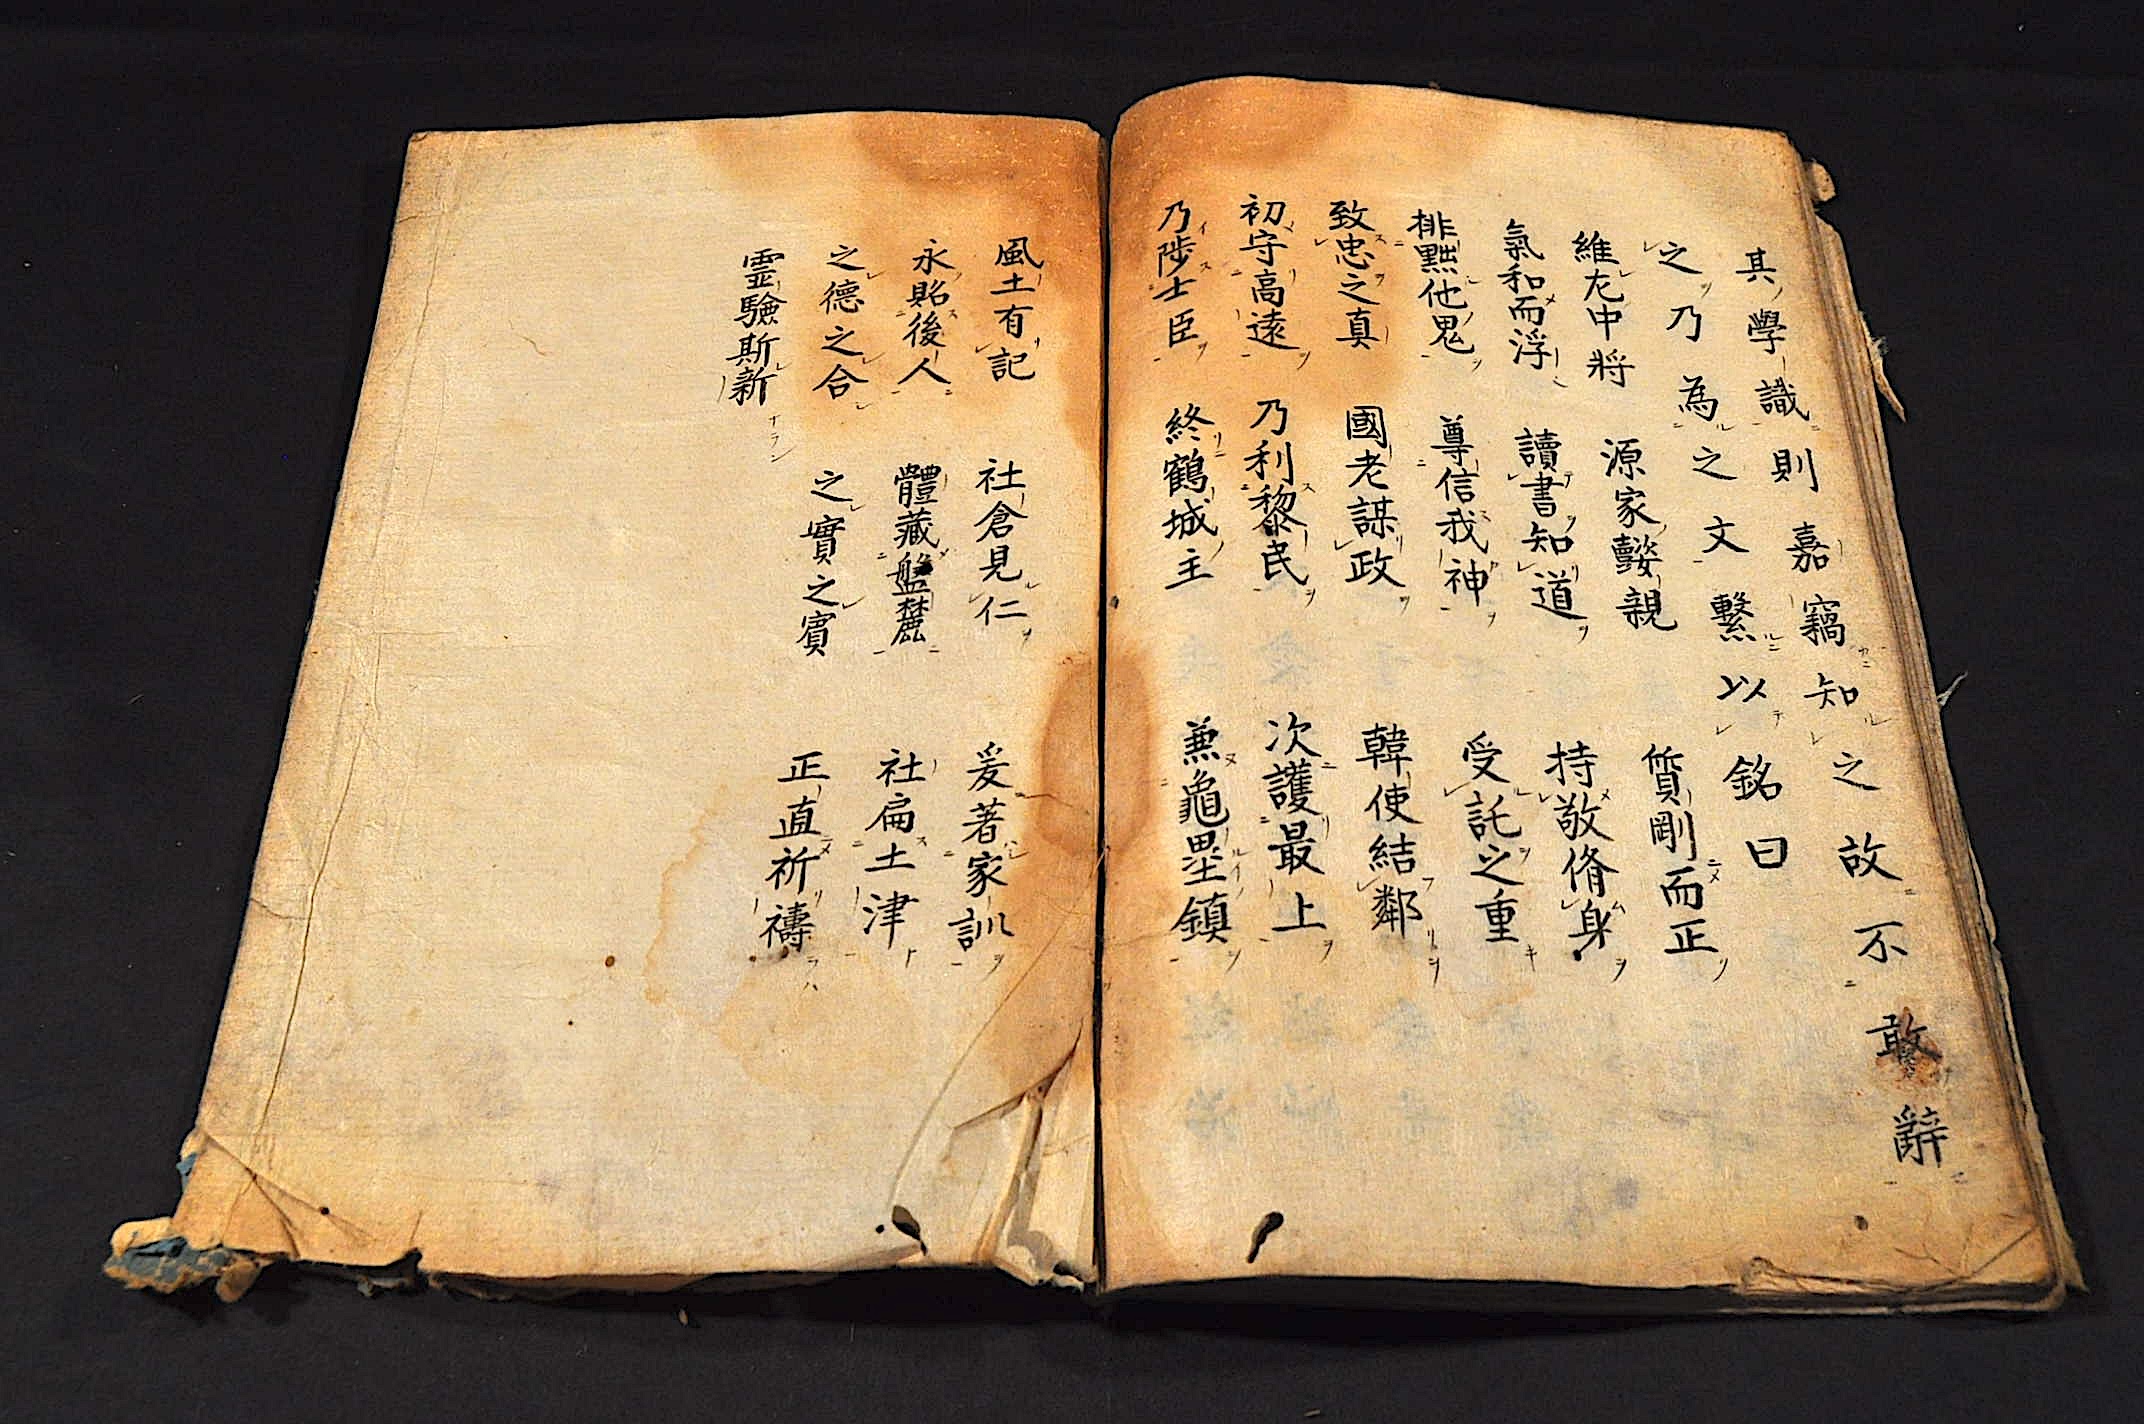 其學識則嘉竊知之故不敢辭
之乃為之文繫以銘曰
維左中將 源家懿親 質剛而正
氣和而浮 讀書知道 持敬脩身
排黜他鬼 尊信我神 受託之重
致忠之真 國老謀政 韓使結鄰
初守高遠 乃利黎民 次護最上
乃陟士臣 終鶴城主 兼龜壘鎮
風土有記 社倉見仁 爰著家訓
永貽後人 體藏盤麓 社扁土津
之德之合 之實之賓 正直祈禱
霊驗斯新